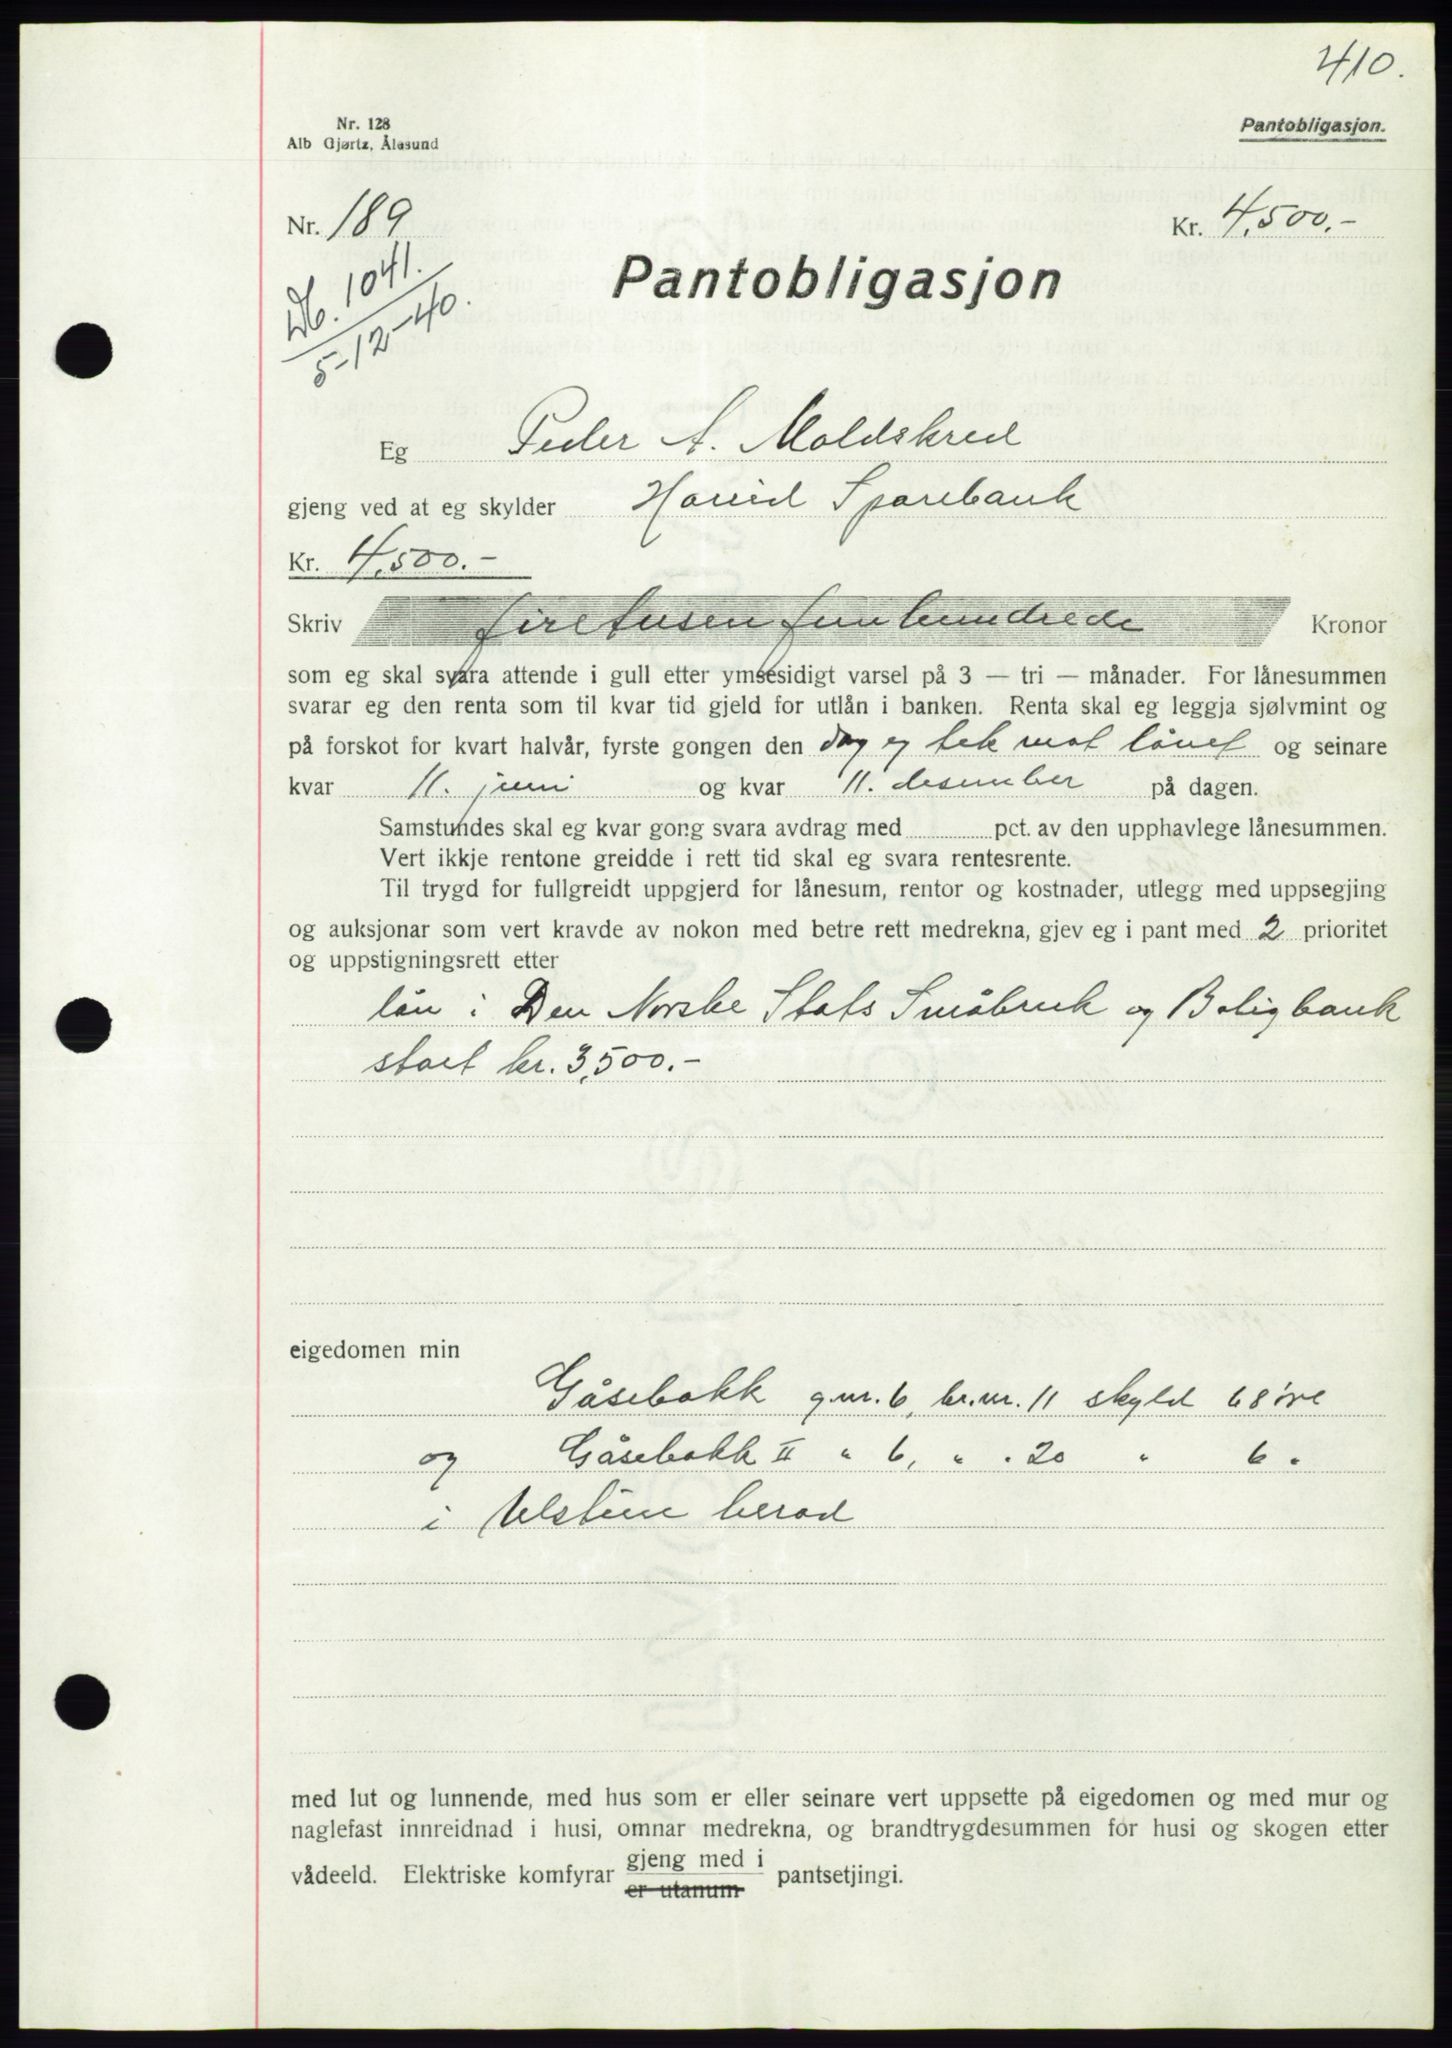 410.
Nr. 128
Alb Gjørtz, Ålesund
Pantobligasjon.
Nr. 189
Kr. 4,500.-
Db. 1041.
5-12-40.
Pantobligasjon
Eg Peder A. Moldskred
gjeng ved at eg skylder Hareid Sparebank
Kr. 4,500.-
Skriv firetusenfemhundrede Kronor
som eg skal svara attende i gull etter ymsesidigt varsel på 3 — tri — månader. For lånesummen
svarar eg den renta som til kvar tid gjeld for utlån i banken. Renta skal eg leggja sjølvmint og
på forskot for kvart halvår, fyrste gongen den dag eg tek mot lånet og seinare
kvar 11. juni og kvar 11. desember på dagen.
Samstundes skal eg kvar gong svara avdrag med pct. av den upphavlege lånesummen.
Vert ikkje rentone greidde i rett tid skal eg svara rentesrente.
Til trygd for fullgreidt uppgjerd for lånesum, rentor og kostnader, utlegg med uppsegjing
og auksjonar som vert kravde av nokon med betre rett medrekna, gjev eg i pant med 2 prioritet
og uppstigningsrett etter
lån i Den Norske Stats Småbruk og Boligbank
stort kr. 3,500.-
eigedomen min
Gåsebakk g.nr. 6, br.nr. 11 skyld 68 øre
og Gåsebakk II " 6, " . 20 " 6 "
i Ulstein herad
med lut og lunnende, med hus som er eller seinare vert uppsette på eigedomen og med mur og
naglefast innreidnad i husi, omnar medrekna, og brandtrygdesummen for husi og skogen etter
vådeeld. Elektriske komfyrar gjeng med i pantsetjingi.
er utanum